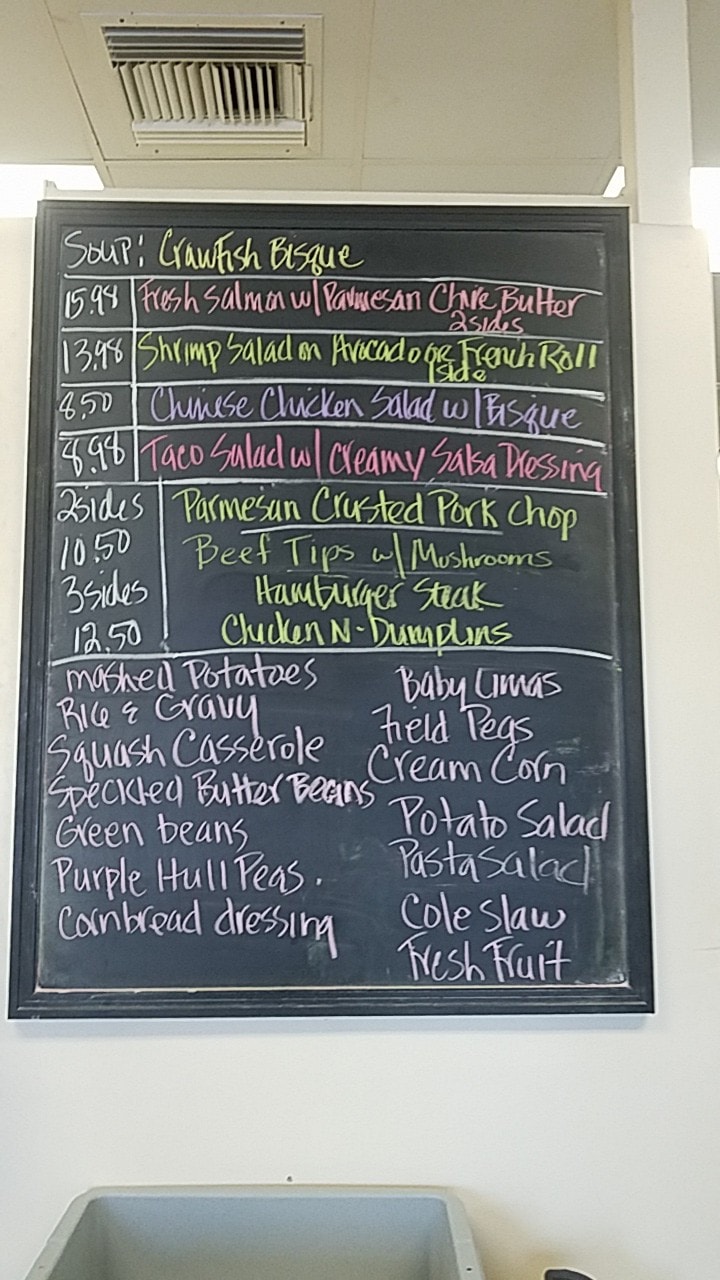 Soup: Crawfish Bisque
15.98 Fresh Salmon w/ Parmesan Chive Butter
2 sides
13.98 Shrimp Salad on Avocado or French Roll
1 side
8.50 Chinese Chicken Salad w/ Bisque
8.98 Taco Salad w/ Creamy Salsa Dressing
2 sides Parmesan Crusted Pork Chop
10.50 Beef Tips w/ Mushrooms
3 sides Hamburger Steak
12.50 Chicken N-Dumplins
Mashed Potatoes
Rice & Gravy
Squash Casserole
Speckled Butter Beans
Green beans
Purple Hull Peas.
Cornbread dressing
Baby Limas
Field Peas
Cream Corn
Potato Salad
Pasta Salad
Cole Slaw
Fresh Fruit